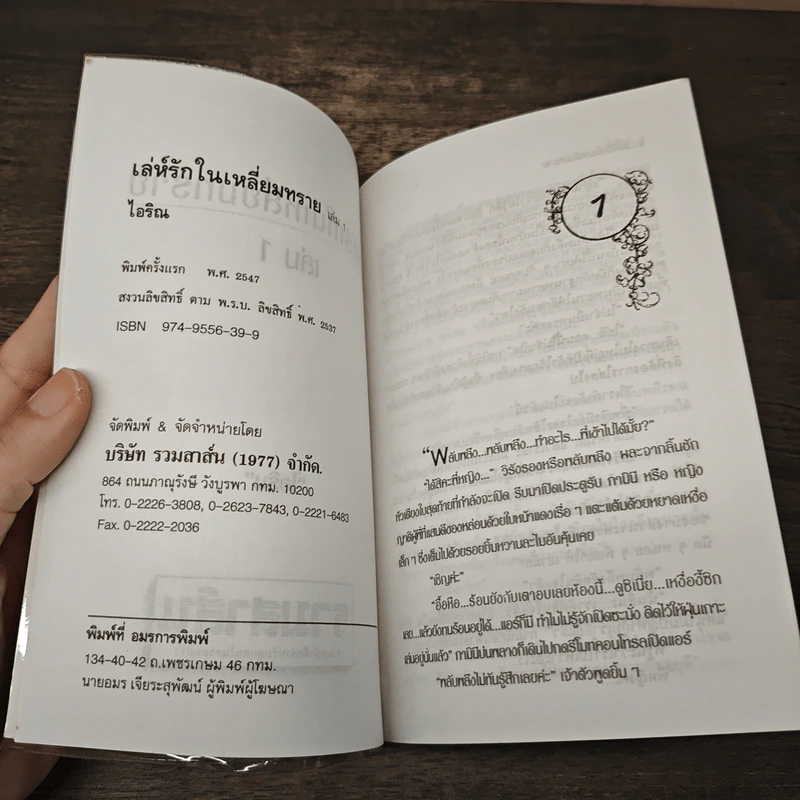 เล่ห์รักในเหลี่ยมทราย เล่ม 1
ไอริณ
พิมพ์ครั้งแรก พ.ศ. 2547
สงวนลิขสิทธิ์ ตาม พ.ร.บ. ลิขสิทธิ์ พ.ศ. 2537
ISBN 974-9556-39-9
จัดพิมพ์ & จัดจำหน่ายโดย
บริษัท รวมสาส์น (1977) จำกัด.
864 ถนนภาณุรังษี วังบูรพา กทม. 10200
โทร. 0-2226-3808, 0-2623-7843, 0-2221-6483
Fax. 0-2222-2036
พิมพ์ที่ อมรการพิมพ์
134-40-42 ถ.เพชรเกษม 46 กทม.
นายอมร เจียระสุพัฒน์ ผู้พิมพ์ผู้โฆษณา
1
"พลับพลึง...พลับพลึง...ทำอะไร...พี่เข้าไปได้มั้ย?"
"ได้สิคะพี่หญิง..." วิรังรองหรือพลับพลึง ผละจากลิ้นชัก
หัวเตียงใบสุดท้ายที่กำลังจะเปิด รีบมาเปิดประตูรับ ภามินี หรือ หญิง
ญาติผู้พี่ที่แสนดีของหล่อนด้วยใบหน้าแดงเรื่อ ๆ และแต้มด้วยหยาดเหงื่อ
เล็ก ๆ ซึ่งเต็มไปด้วยรอยยิ้มหวานละไมอันคุ้นเคย
"เชิญค่ะ"
"อื้อหือ...ร้อนยังกับเตาอบเลยห้องนี้...ดูซิเนี่ย...เหงื่ออี้ซิก
เลย...แล้วยังทนร้อนอยู่ได้...แอร์ก็มี ทำไมไม่รู้จักเปิดซะมั่ง ติดไว้ให้ฝุ่นเกาะ
เล่นอยู่นั่นแล้ว" ภามินีบ่นพลางก็เดินไปกดรีโมทคอนโทรลเปิดแอร์
"พลับพลึงไม่ทันรู้สึกเลยค่ะ" เจ้าตัวพูดยิ้ม ๆ